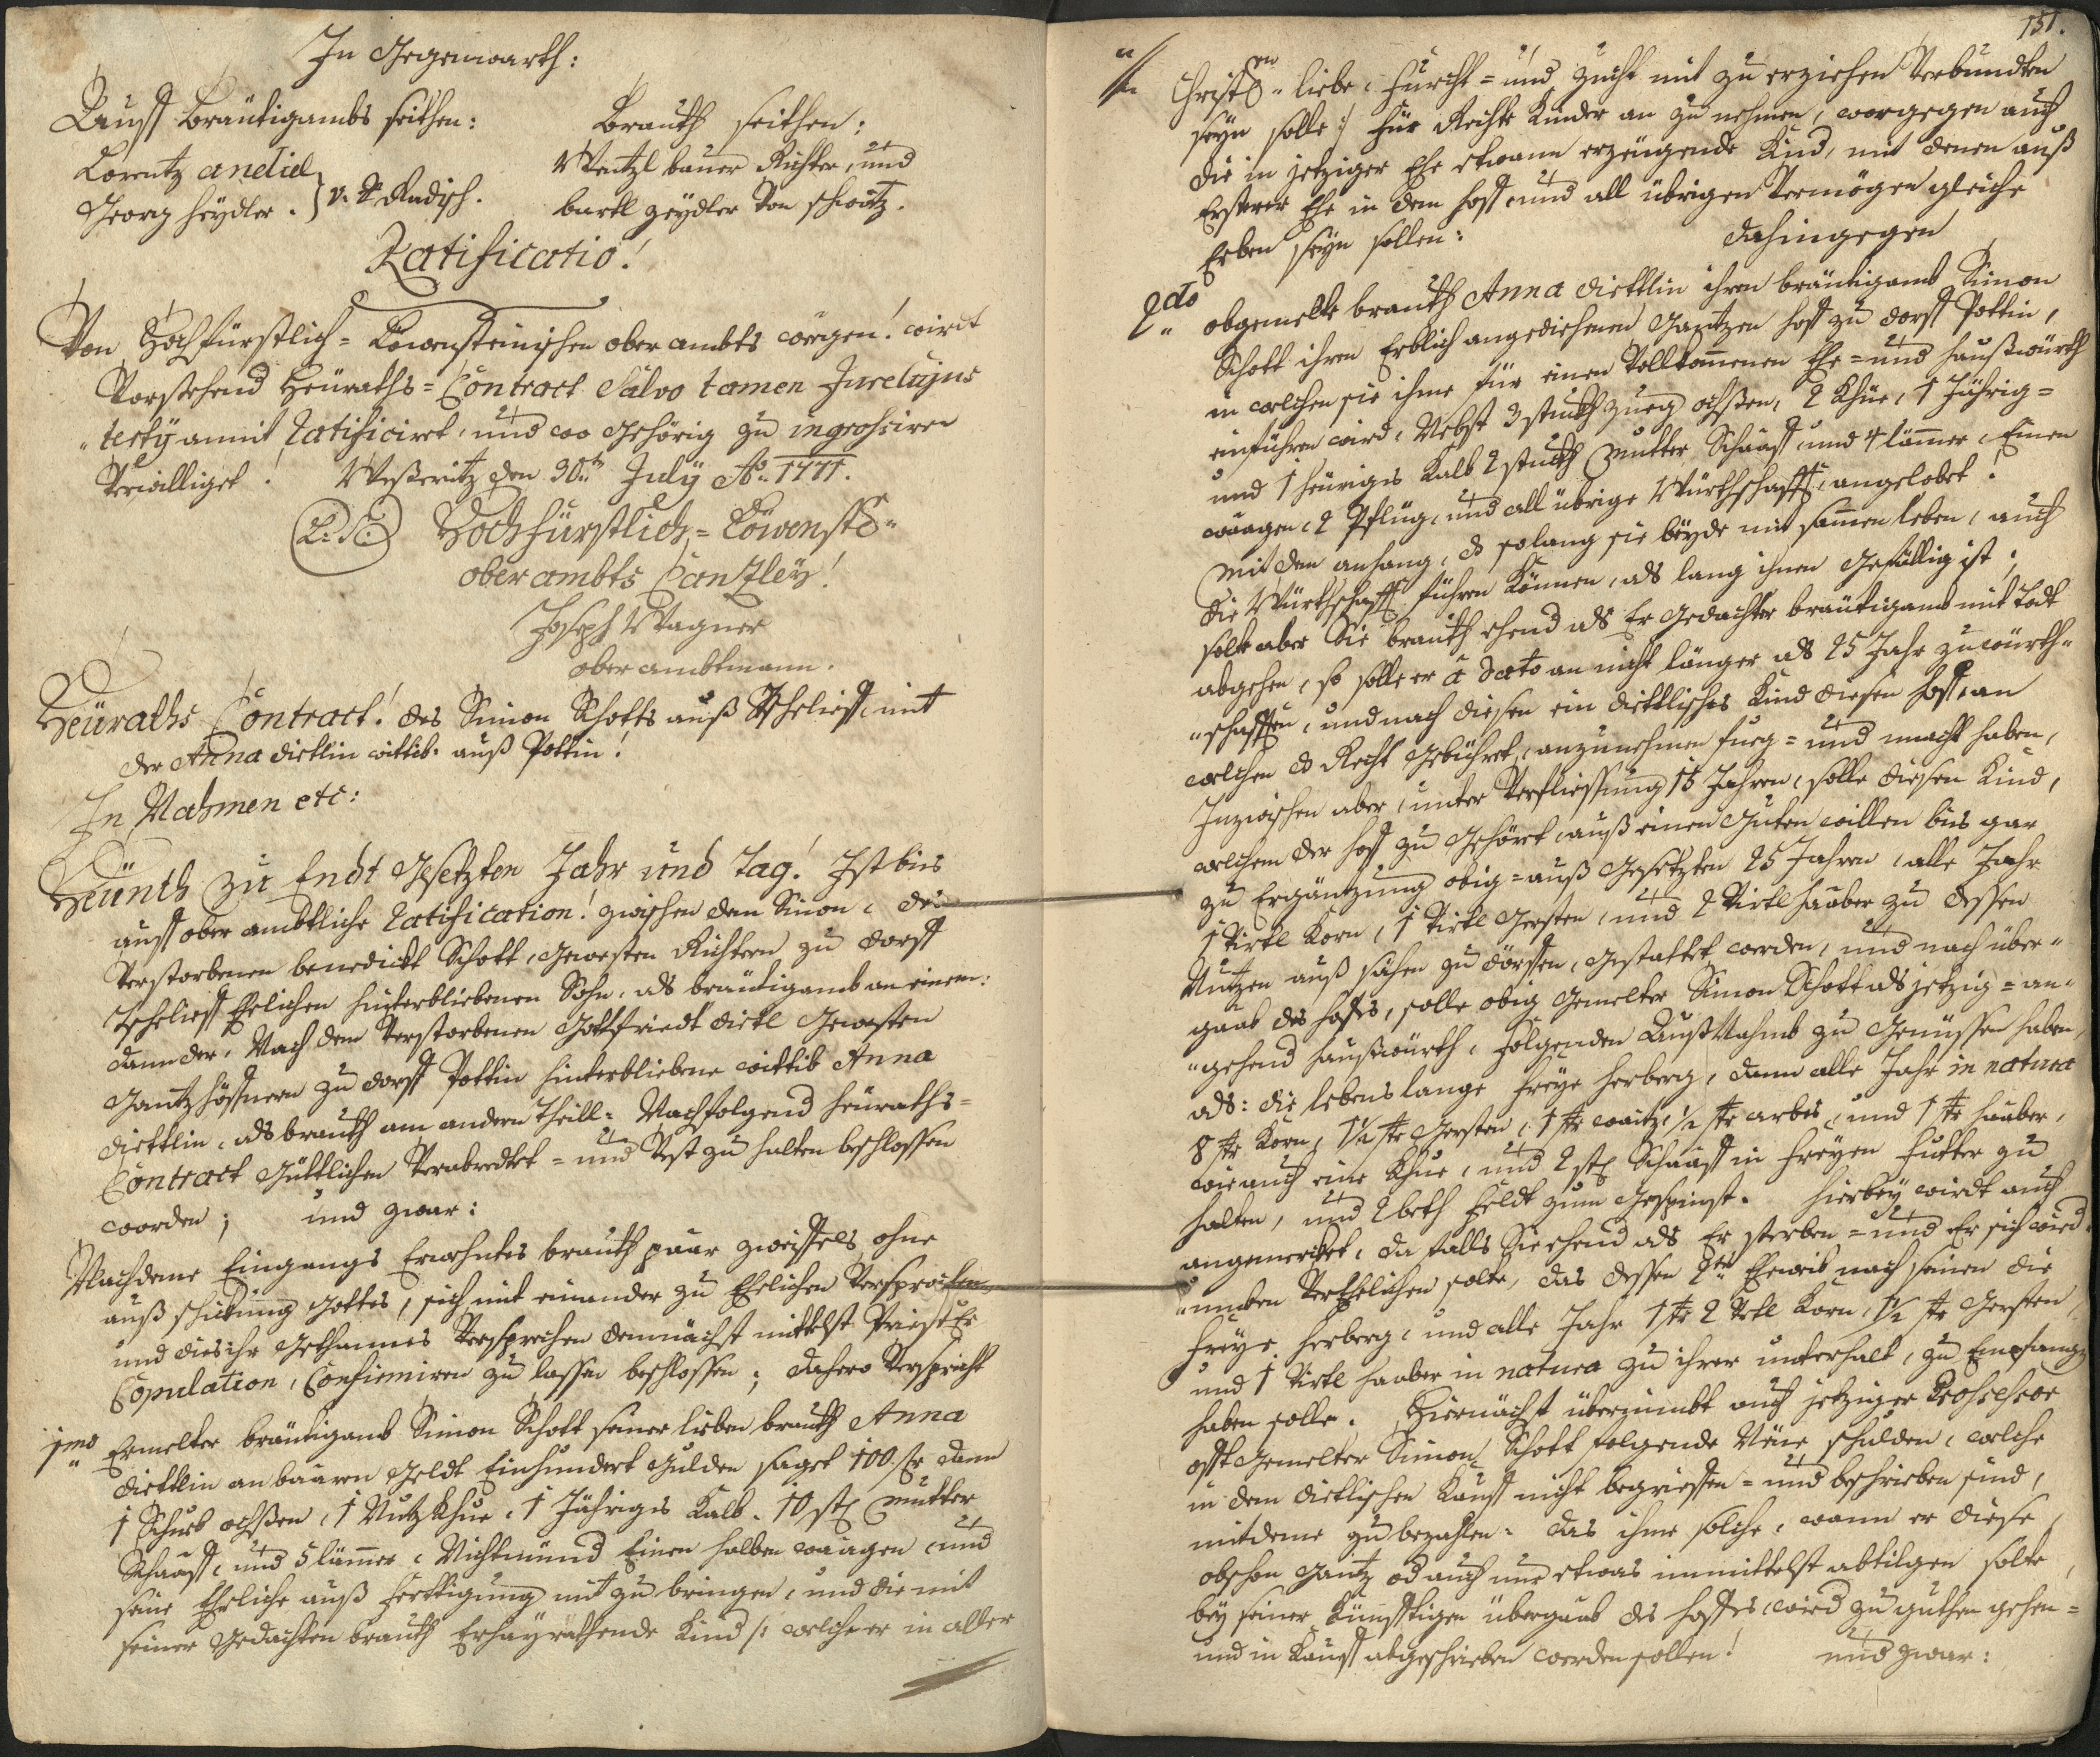 In Gegenwarth:
Auff bräutigambs seithen: Brauth seithen:
Lorentz andiel Wentzl bauer Richter, und
Georg heydler. } v. Radisch. bartl heydler Von schwitz.
Ratificatio!
Von Hochfürstlich-Löwensteinischen oberambts wegen! wirdt
Vorstehend Heüraths-Contract Salvo tamen Jure cujus
"tecky anmit Ratificiret, und wo gehörig zu ingrossiren
verwilliget! Weßeritz den 30ten July Ao. 1771.
L:S: Hochfürstlich-Löwenst.
oberambts Cantzley!
Joseph Wagner
oberambtmann.
Heüraths Contract! des Simon Schotts auß Tschelieff, mit
der Anna dietlin wittib: auß Pottin!
In Nahmen etc:
Heünth zu Endt gesetzten Jahr und Tag! Ist bis
auff oberambtliche Ratification! zwischen dem Simon, des
verstorbenen benedickt Schott, gewesten Richtern zu dorff
Tschelieff Ehelichen hinterbliebenen Sohn, als bräutigamb an einem:
dann der, Nach dem Verstorbenen Gottfriedt dietl gewesten
Gantzhöffnern zu dorff Pottin hinterbliebene wittib Anna
diettlin, als brauth am andern theill: Nachfolgend heüraths-
Contract güttlichen Verabredtet- und Vest zu halten beschlossen
worden; und zwar:
Nachdeme Eingangs Erwehntes brauth paar zweiffels ohne
auß schickung Gottes, sich mit einander zu Ehelichen Versprochen
und dies ihr gethannes Versprechen demnächst mittelst Priester
Copulation, Confirmiren zu lassen beschlossen; dahero Verspricht
1mo Ermelter bräutigamb Simon Schott seiner lieben brauth Anna
diettlin an baaren geldt Einhundert Gulden saget 100 fr dann
1 Schub ochßen, 1 Nutz Khue, 1 Jähriges Kalb, 10 st Mutter
Schaaff, und 5 lämmer, Nichtmünd Einen halben waagen, und
seine Ehrliche auß ferttigung mit zu bringen, und die mit
seiner gedachten brauth Erheyrathende Kind /: welche er in aller
151.
Christen liebe, furcht- und zucht mit zu erziehen Verbundten
seyn solle :/ für Rechte Kinder an zu nehmen, worgegen auch
die in jetziger Ehe etwann erzeugende Kind, mit denen auß
Ersterer Ehe in dem hoff, und all übrigen Vermögen gleiche
Erben seyn sollen: dahingegen
2do obgemelte brauth Anna diettlin ihren bräutigamb Simon
Schott ihren Erblich angediehenen Gantzen hoff zu dorff Pottin,
in welchen sie ihme für einen Vollkommenen Ehe- und haußwürth
einführen wird, Nebst 3 stuckh Zueg ochßen, 2 Khüe, 1 Jährig-
und 1 heüriges Kalb 2 stuckh Mutter Schaaff, und 4 lämmer, Einen
waagen, 2 Pflüg, und all übrige Würthschafft, angelobet!
Mit dem anhang, ds solang sie beyde mit sammen leben, auch
die Würthschafft führen können, als lang ihnen gefällig ist;
solte aber die brauth ehend als Er gedachter bräutigamb mit Todt
abgehen, so solle er à dato an nicht länger als 25 Jahr zu würth-
"schafften, und nach diesen ein diettlisches Kind diesen hoff, an
welchen ds Recht gebühret, anzunehmen fueg- und macht haben,
Inzwischen aber, unter Verfliessung 15 Jahren, solle diesen Kind,
welchem der hoff zu gehört, auß einen Guten willen bis gar
zu Ergäntzung obig- auß gesetzten 25 Jahren, alle Jahr
1 Virtl Korn, 1 Virtl Gersten, und 2 Virtl haaber zu dessen
Nutzen auß sähen zu dörffen, gestattet werden, und nach über-
gaab des hoffs, solle obig gemelter Simon Schott als jetzig- an-
"gehend haußwürth, folgenden Außnahmb zu genüssen haben,
als: die lebenslange freye herberg, dann alle Jahr in natura
8 str Korn, 1½ str Gersten, 1 str waitz, ½ str arbes, und 1 str haaber,
wie auch eine Khue, und 2 st Schaaff in freyen futter zu
halten, und 2 beth feldt zum gespinst. Hierbey wirdt auch
angemerckt, da falls Sie ehend als Er sterben- und Er sich wied-
"umben Verehelichen solte, das dessen 2tes Eheweib nach seinen die
freye herberg, und alle Jahr 1 str 2 Vrtl Korn, 1½ str Gersten,
und 1 Virtl haaber in natura zu ihrer unterhalt, zu Empfangen
haben solle. Hiernächst übernimbt auch jetziger Possessor
offt gemelter Simon Schott folgende Neüe schulden, welche
in dem dietlischen Kauff nicht begrieffen- und beschrieben sind,
mitdeme zu bezahlen: das ihme solche, wann er diese
obschon Gantz od auch nur etwas inmittelst abtilgen solte,
bey seiner künfftigen übergaab des hoffes wird zu guthen gehen-
und in Kauff abgeschrieben werden sollen! und zwar: